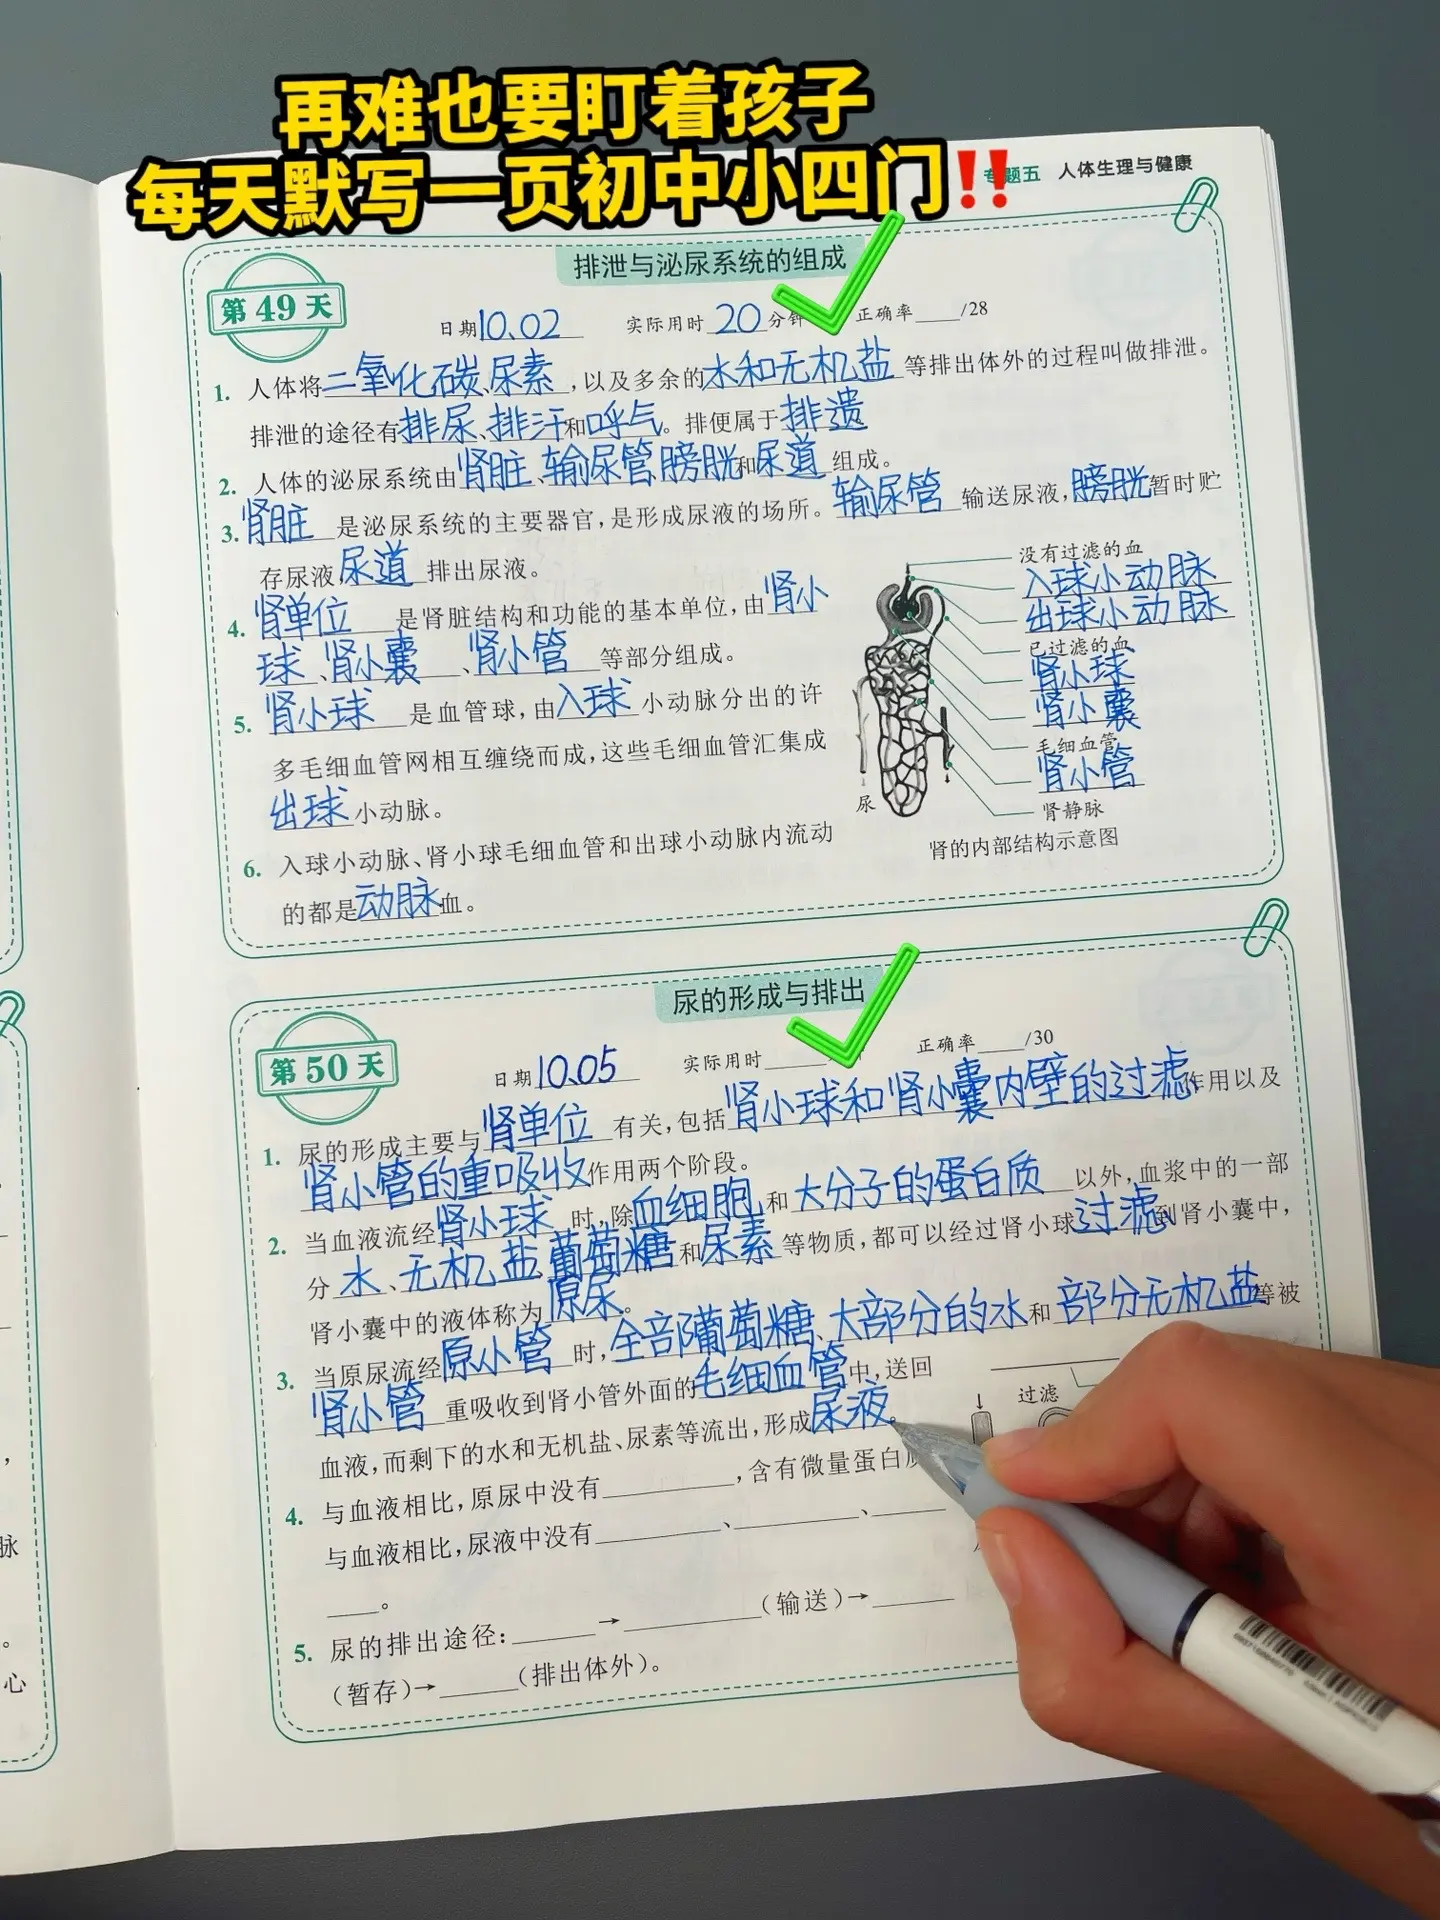 再难也要盯着孩子
每天默写一页初中小四门‼️
专题五 人体生理与健康
排泄与泌尿系统的组成
第 49 天
日期 10、02 实际用时 20 分钟 正确率____/28
1. 人体将二氧化碳、尿素,以及多余的水和无机盐等排出体外的过程叫做排泄。
排泄的途径有排尿、排汗和呼气。排便属于排遗
2. 人体的泌尿系统由肾脏、输尿管、膀胱和尿道组成。
3. 肾脏是泌尿系统的主要器官,是形成尿液的场所。输尿管输送尿液,膀胱暂时贮
存尿液,尿道排出尿液。
4. 肾单位是肾脏结构和功能的基本单位,由肾小
球、肾小囊、肾小管等部分组成。
5. 肾小球是血管球,由入球小动脉分出的许
多毛细血管网相互缠绕而成,这些毛细血管汇集成
出球小动脉。
6. 入球小动脉、肾小球毛细血管和出球小动脉内流动
的都是动脉血。
没有过滤的血
入球小动脉
出球小动脉
已过滤的血
肾小球
肾小囊
毛细血管
肾小管
肾静脉
尿
肾的内部结构示意图
尿的形成与排出
第 50 天
日期 10、05 实际用时____ 正确率____/30
1. 尿的形成主要与肾单位有关,包括肾小球和肾小囊内壁的过滤作用以及
肾小管的重吸收作用两个阶段。
2. 当血液流经肾小球时,除血细胞和大分子的蛋白质以外,血浆中的一部
分水、无机盐、葡萄糖和尿素等物质,都可以经过肾小球过滤到肾小囊中,
肾小囊中的液体称为原尿。
3. 当原尿流经原小管时,全部葡萄糖、大部分的水和部分无机盐等被
肾小管重吸收到肾小管外面的毛细血管中,送回
血液,而剩下的水和无机盐、尿素等流出,形成尿液。
4. 与血液相比,原尿中没有____,含有微量蛋白
与血液相比,尿液中没有____、____、____
____。
5. 尿的排出途径:____→____(输送)→____
(暂存)→____(排出体外)。
过滤
脉
。
心